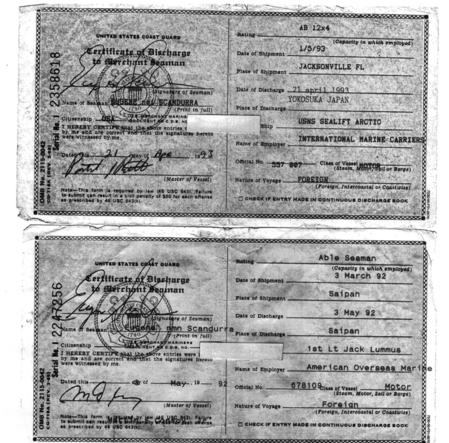 UNITED STATES COAST GUARD
Certificate of Discharge
to Merchant Seaman
(Signature of Seaman)
Name of Seaman EUGENE nmn SCANDURRA
(Print in full)
Citizenship USA
I HEREBY CERTIFY that the above entries
by me and are correct and that the signatures hereto
were witnessed by me.
Dated this 21 day Apr 1993
(Master of Vessel)
Note—This form is required by law (46 USC 643). Failure
to submit can result in a civil penalty of $50 for each seaman
as prescribed by 46 USC
Serial No. I 2358618
Rating AB 12x4
(Capacity in which employed)
Date of Shipment 1/5/93
Place of Shipment JACKSONVILLE FL
Date of Discharge 21 april 1993
Place of Discharge YOKOSUKA JAPAN
Ship USNS SEALIFT ARCTIC
Name of Employer INTERNATIONAL MARINE CARRIERS
Official No. 557 Class of Vessel MOTOR
(Steam, Motor, Sail or Barge)
Nature of Voyage FOREIGN
(Foreign, Intercoastal or Coastwise)
CHECK IF ENTRY MADE IN CONTINUOUS DISCHARGE BOOK
UNITED STATES COAST GUARD
Certificate of Discharge
to Merchant Seaman
(Signature of Seaman)
Name of Seaman Eugene nmn Scandurra
Citizenship
I HEREBY CERTIFY that the above entries were
by me and are correct and that the signatures hereto
were witnessed by me.
Dated this of May 19 92
(Master of Vessel)
Note—This form is required by law
to submit can result in
as prescribed by 46 USC
Serial No. I 2247256
Rating Able Seaman
(Capacity in which employed)
Date of Shipment 3 March 92
Place of Shipment Saipan
Date of Discharge 3 May 92
Place of Discharge Saipan
1st Lt Jack Lummus
Name of Employer American Overseas Marine
Official No. 678109 Class of Vessel Motor
(Steam, Motor, Sail or Barge)
Nature of Voyage Foreign
(Foreign, Intercoastal or Coastwise)
CHECK IF ENTRY MADE IN CONTINUOUS DISCHARGE BOOK